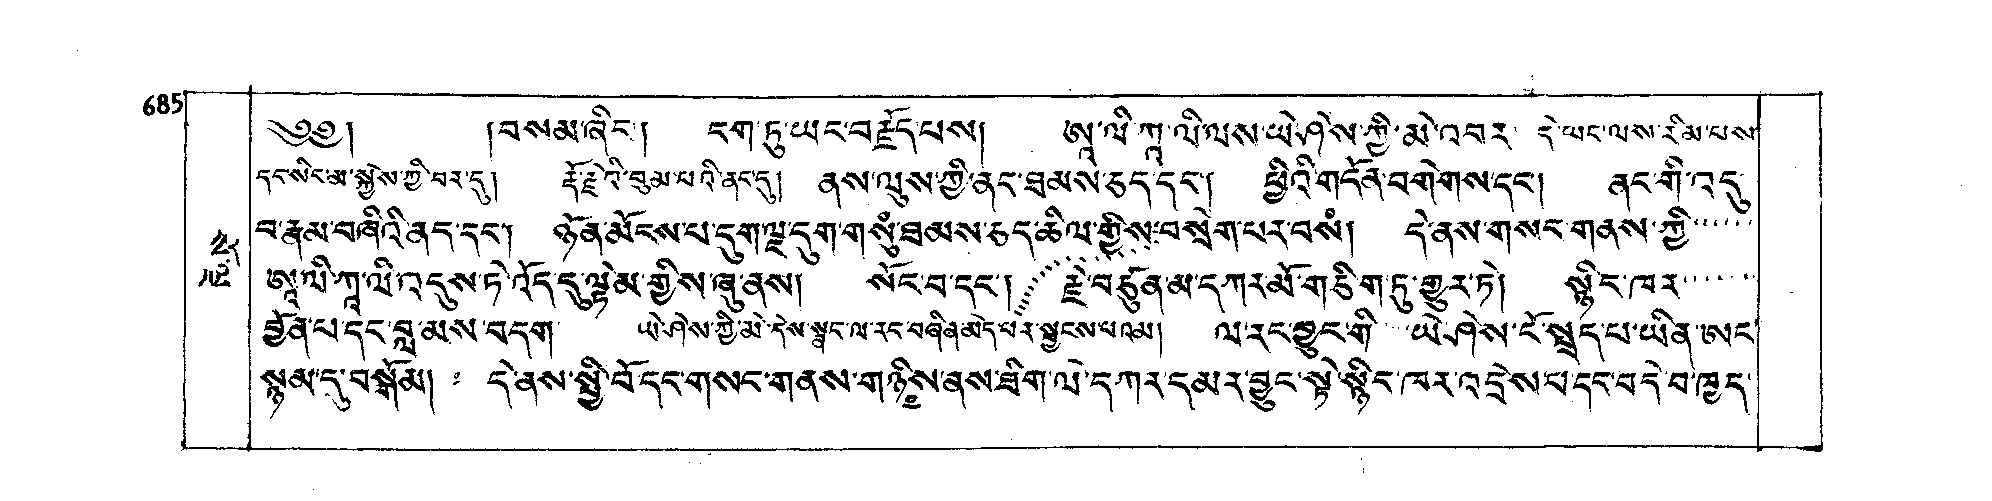 685
༄༅། །བསམ་ཞིང་། ངག་ཏུ་ཡང་བརྗོད་པས། ཨཱ་ལི་ཀཱ་ལི་ལས་ཡེ་ཤེས་ཀྱི་མེ་འབར་ དེ་ཡང་ལས་རིམ་པས་
དང་སིང་མ་སྐྱེས་ཀྱི་བར་དུ། རྡོ་རྗེ་འི་བུམ་པ་འི་ནང་དུ། ནས་ལུས་ཀྱི་ནང་ཐམས་ཅད་དང་། ཕྱིའི་གདོན་བགེགས་དང་། ནང་གི་འདུ་
བ་རྣམ་བཞིའི་ནད་དང་། ཉོན་མོངས་པ་དུག་ལྔ་དུག་གསུཾ་ཐམས་ཅད་ཚིལ་གྱིས་བསྲེག་པར་བསཾ། དེ་ནས་གསང་གནས་ཀྱི་
ཨཱ་ལི་ཀཱ་ལི་འདུས་ཏེ་འོད་དུ་ལྟེམ་གྱིས་ཞུ་ནས། སོང་བ་དང་། རྗེ་བཙུན་མ་དཀར་མོ་གཅིག་ཏུ་གྱུར་ཏེ། སྙིང་ཁར་
བྱོན་པ་དང་བླ་མས་བདག་ ཡེ་ཤེས་ཀྱི་མེ་དེས་སྣང་ལ་རང་བཞིན་མེད་པར་སྦྱངས་པའམ། ལ་རང་བྱུང་གི་ ཡེ་ཤེས་ངོ་སྤྲད་པ་ཡིན་ཨང་
སྙམ་དུ་བསྒོམ། དེ་ནས་སྤྱི་བོ་དང་གསང་གནས་གཉིས་ནས་ཐིག་ལེ་དཀར་དམར་བྱུང་སྟེ་སྙིང་ཁར་འདྲེས་པ་དང་བདེ་བ་ཁྱད་